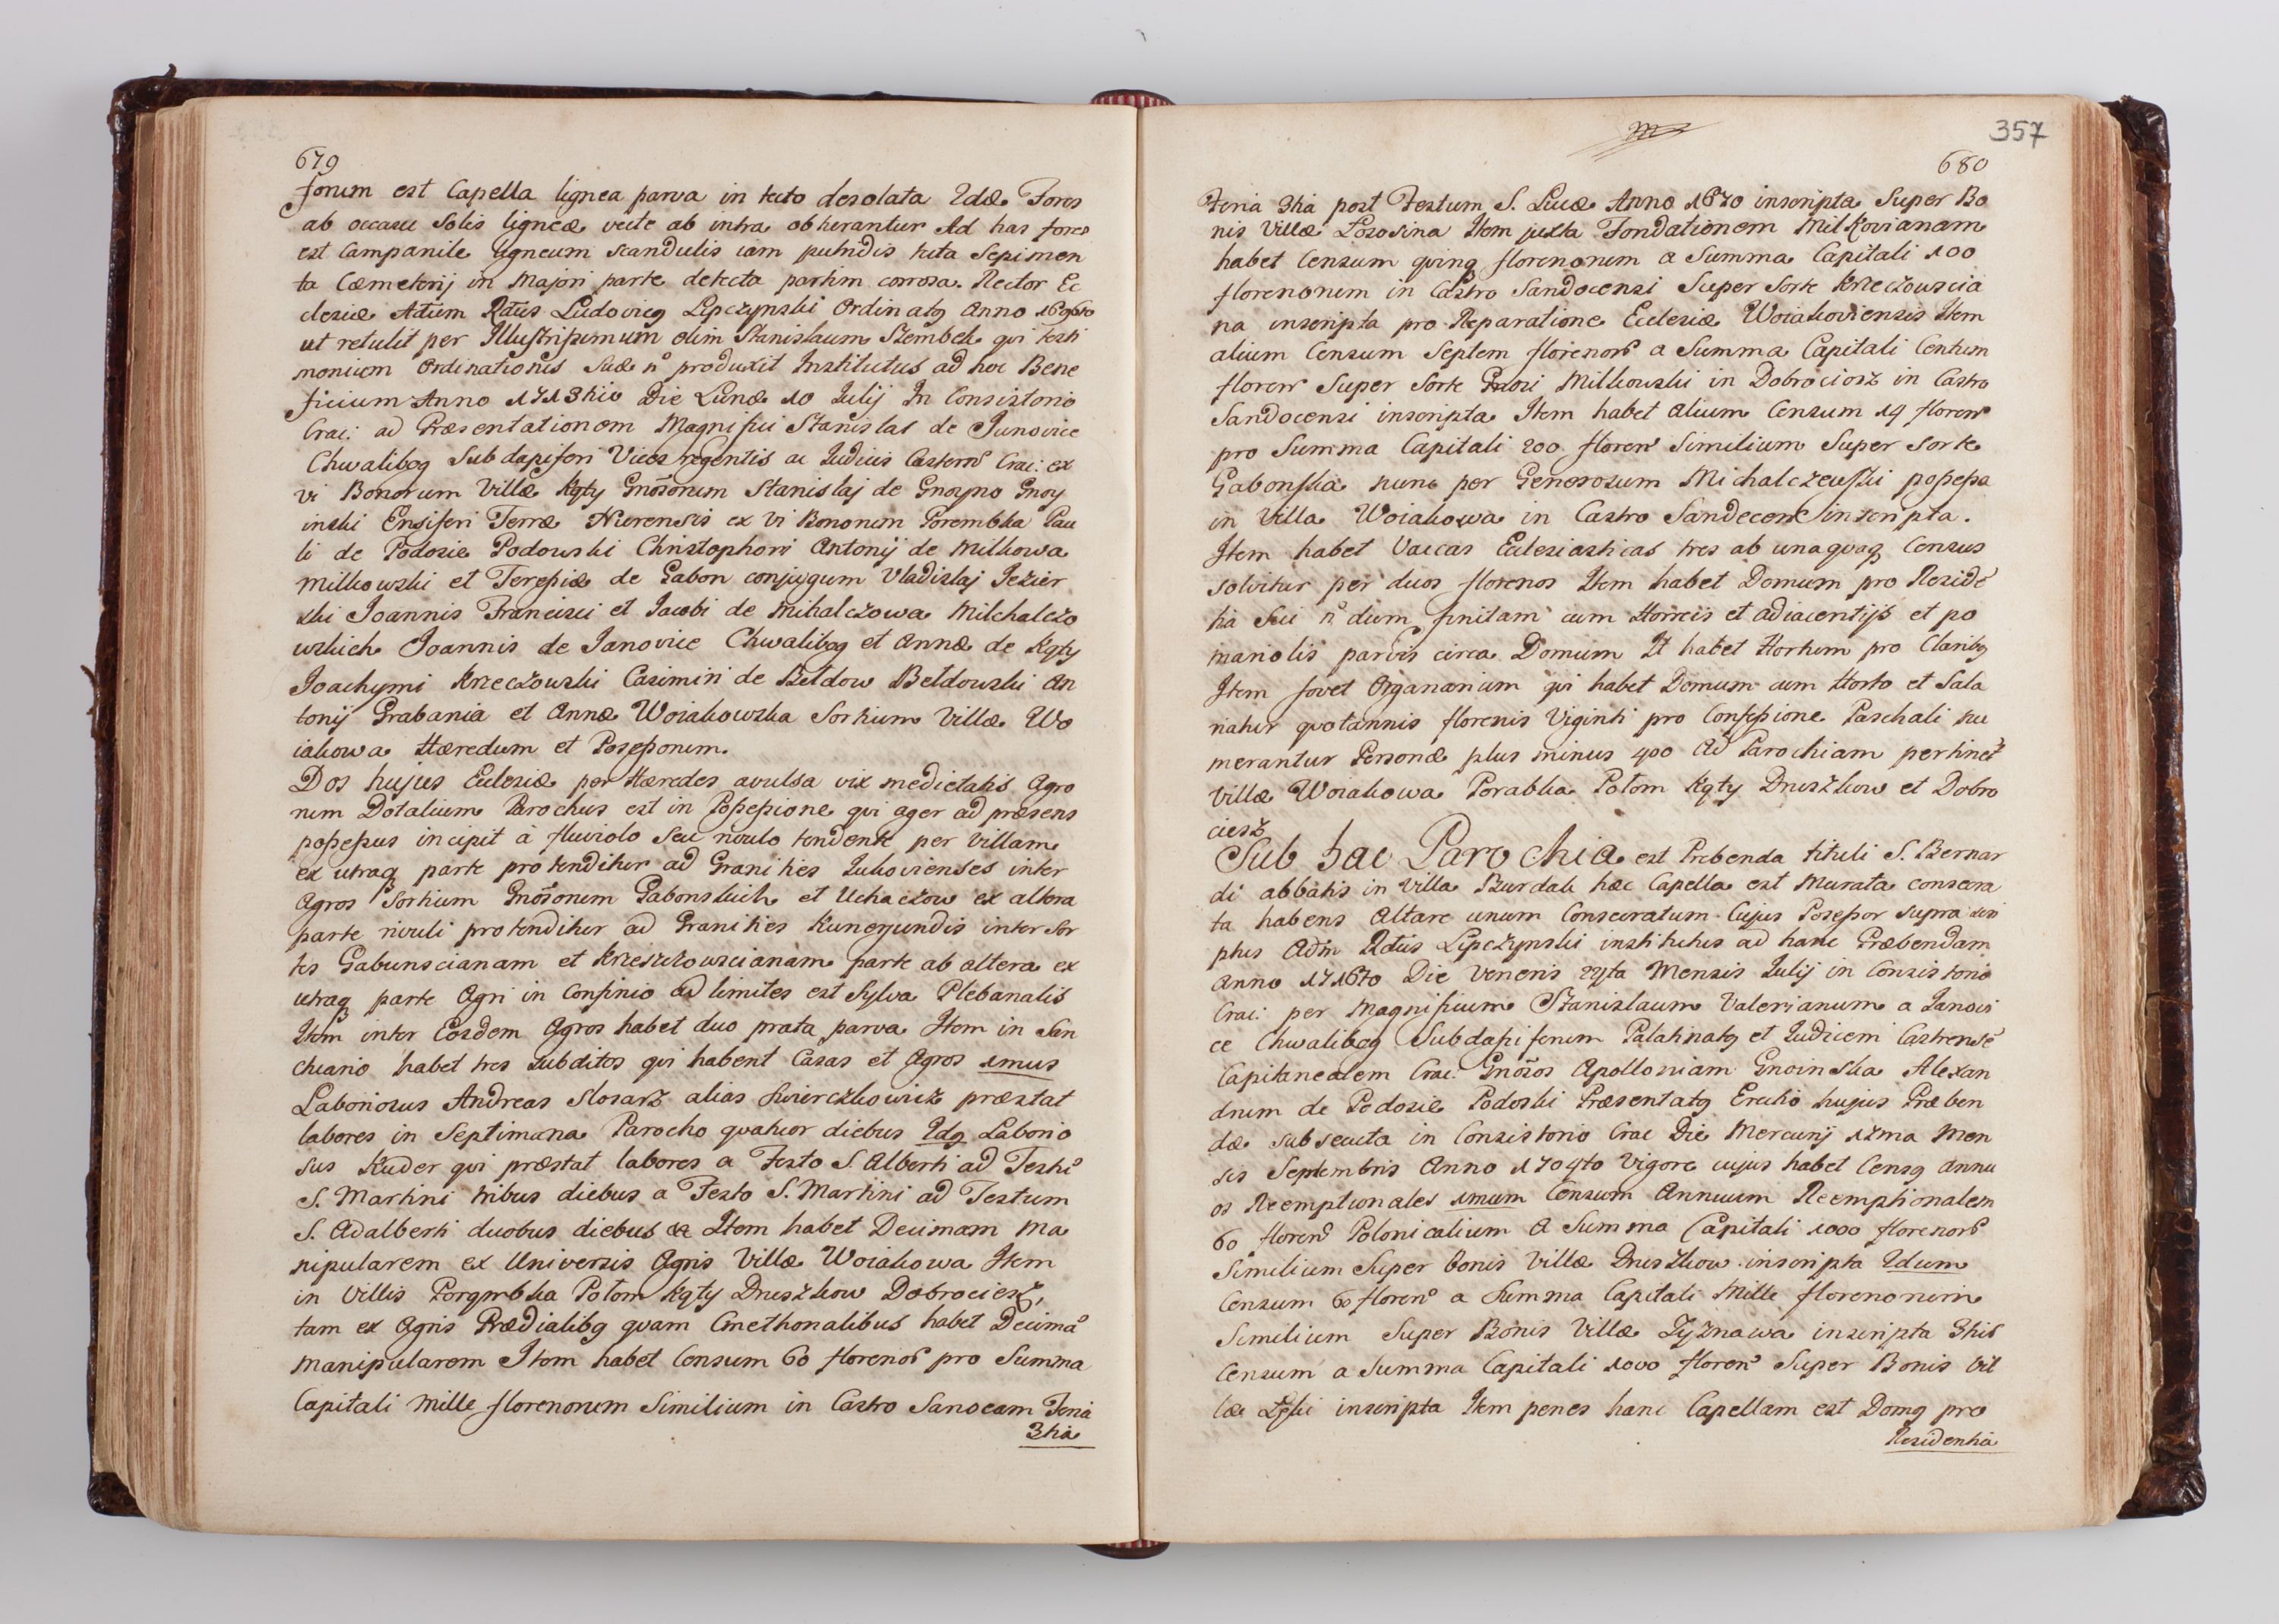 679
forum est Capella lignea parva in tecto desolata 2dæ Fores
ab occasu Solis ligneæ vecte ab intra obserantur Ad has fores
est Campanile ligneum scandulis iam putridis tecta Sepimen
ta Cæmeterij in Majori parte detecta partim corrosa. Rector Ec
clesiæ Adum Rdus Ludovicq Lipczynski Ordinatq Anno
ut retulit per Illustrissimum olim Stanislaum Szembek qui testi
monium Ordinationis Suæ no produxit Institutus ad hoc Bene
ficium Anno 1713tio Die Lunæ 10 Iulij In Consistorio
Crac: ad Præsentationem Magnifici Stanislai de Janovice
Chwalibog Subdapiferi Vices regentis ac Iudicis Castren Crac: ex
vi Bonorum Villæ Kąty Gnosorum Stanislaj de Gnoyno Gnoy
inski Ensiferi Terræ Nurensis ex Vi Bonorum Porembka Pau
li de Podosie Podowski Christophori Antonij de Milkowa
Milkowski et Teressiæ de Gabon conjugum Vladislaj Jezier
ski Joannis Francisci et Jacobi de Mihalczowa Milchalczo
wskich Joannis de Janovice Chwalibog et Annæ de Kąty
Joachymi Krzeczowski Casimiri de Beldow Beldowski An
tonij Grabania et Annæ Woiakowska Sortium Villæ Wo
iakowa Hæredum et Possessorum.
Dos hujus Ecclesiæ per Hæredes avulsa vix medietatis Agro
rum Dotalium Parochus est in Possessione qui ager ad præsens
possessus incipit à fluviolo seu rivulo tendente per Villam
ex utraq parte protenditur ad Granities Iukovienses inter
Agros Sortium Gnosorum Gabonskich et Uchaczow ex altera
parte rivuli protenditur ad Granities Kunegundis inter Sor
tes Gabunscianam et Krzeszowscianam parte ab altera ex
utraq parte Agri in Confinio ad limites est Sylva Plebanalis
Item inter Eosdem Agros habet duo prata parva Item in San
chiario habet tres subditos qui habent Casas et Agros 1mus
Laboriosus Andreas Slosarz alias Swierczkowicz præstat
labores in Septimana Parocho quatuor diebus 2dq Laborio
sus Kuder qui præstat labores a Festo S. Alberti ad Festu
S. Martini tribus diebus a Festo S. Martini ad Festum
S. Adalberti duobus diebus Item habet Decimam Ma
nipularem ex Universis Agris Villæ Woiakowa Item
in Villis Porąmbka Potom Kąty Druszkow Dobrociesz,
tam ex Agris Prædialibq quam Cmethonalibus habet Decima
Manipularem Item habet Censum 60 florenor pro Summa
Capitali Mille florenorum Similium in Castro Sanocem Feria
3tia
357
680
Feria 3tia post Festum S. Lucæ Anno 1670 inscripta Super Bo
nis Villæ Lososina Item juxta Fondationem Milkovianam
habet Censum quinq florenorum a Summa Capitali 100
florenorum in Castro Sandocensi Super Sorte Krzeczowscia
na inscripta pro Reparatione Ecclesiæ Woiakoviensis Item
alium Censum Septem florenor a Summa Capitali Centum
floren Super Sorte Gnosi Milkowski in Dobrociosz in Castro
Sandocensi inscripta Item habet Alium Censum 14 floren
pro Summa Capitali 200 floren Similium Super Sorte
Gabonska nunc per Generosum Michalczewski possessa
in Villa Woiakowa in Castro Sandecen inscripta.
Item habet Vaccas Ecclesiasticas tres ab unaquaq Census
solvitur per duos florenos Item habet Domum pro Reside
tia sui no dum finitam cum Horreis et Adiacentijs et po
mariolis parvis circa Domum It habet Hortum pro Claribq
Item fovet Organarium qui habet Domum cum Horto et Sala
riatur quotannis florenis Viginti pro Confessione Paschali nu
merantur Personæ plus minus 400 Ad Parochiam pertinet
Villæ Woiakowa Porabka Potom Kąty Druszkow et Dobro
ciesz
Sub hac Parochia est Prebenda tituli S. Bernar
di abbatis in Villa Burdak hæc Capella est Murata consecra
ta habens Altare unum Consecratum Cujus Possessor supra scri
ptus Adm Rdus Lipczynski institutus ad hanc Præbendam
Anno Die Veneris Mensis Iulij in Consistorio
Crac: per Magnificum Stanislaum Valerianum a Janovi
ce Chwalibog Subdapiferum Palatinatq et Iudicem Castrense
Capitanealem Crac: Gnosos Apolloniam Gnoinska Alexan
drum de Podosie Podoski Præsentatq Erectio hujus Præben
dæ subsecuta in Consistorio Crac Die Mercurij 17ma Men
sis Septembris Anno 1704to Vigore cujus habet Censq Annu
os Reemptionales 1mum Censum Annuum Reemptionalem
60 floren Polonicalium a Summa Capitali 1000 florenor
Similium Super bonis Villæ Druszkow inscripta 2dum
Censum 60 floren a Summa Capitali Mille florenorum
Similium Super Bonis Villæ Tyznawa inscripta 3tius
Censum a Summa Capitali 1000 floren Super Bonis Vil
læ inscripta Item penes hanc Capellam est Domq pro
Residentia